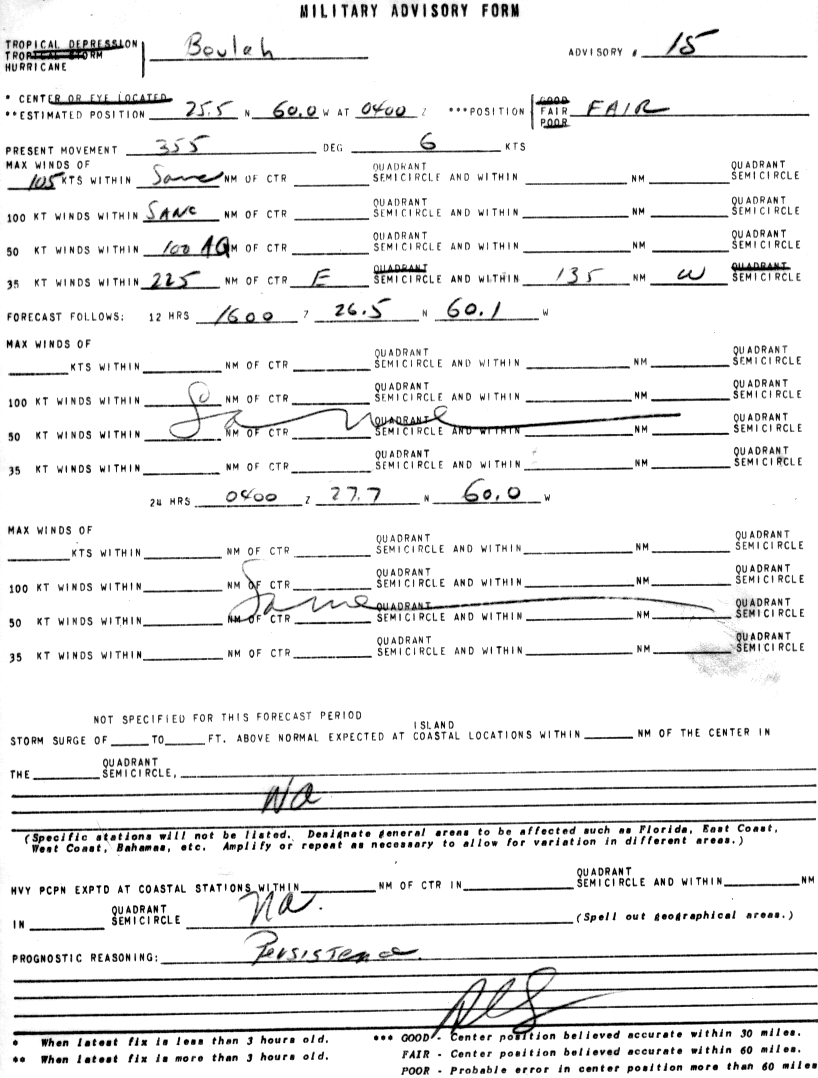 MILITARY ADVISORY FORM
TROPICAL DEPRESSION
TROPICAL STORM Beulah ADVISORY # 15
HURRICANE
* CENTER OR EYE LOCATED
**ESTIMATED POSITION 25.5 N 60.0 W AT 0400 Z ***POSITION GOOD FAIR POOR FAIR
PRESENT MOVEMENT 355 DEG 6 KTS
MAX WINDS OF QUADRANT QUADRANT
105 KTS WITHIN Same NM OF CTR SEMICIRCLE AND WITHIN NM SEMICIRCLE
QUADRANT QUADRANT
100 KT WINDS WITHIN SAME NM OF CTR SEMICIRCLE AND WITHIN NM SEMICIRCLE
QUADRANT QUADRANT
50 KT WINDS WITHIN 100 AQ NM OF CTR SEMICIRCLE AND WITHIN NM SEMICIRCLE
QUADRANT QUADRANT
35 KT WINDS WITHIN 225 NM OF CTR E SEMICIRCLE AND WITHIN 135 NM W SEMICIRCLE
FORECAST FOLLOWS: 12 HRS 1600 Z 26.5 N 60.1 W
MAX WINDS OF QUADRANT QUADRANT
KTS WITHIN NM OF CTR SEMICIRCLE AND WITHIN NM SEMICIRCLE
QUADRANT QUADRANT
100 KT WINDS WITHIN NM OF CTR SEMICIRCLE AND WITHIN NM SEMICIRCLE
Same QUADRANT QUADRANT
50 KT WINDS WITHIN NM OF CTR SEMICIRCLE AND WITHIN NM SEMICIRCLE
QUADRANT QUADRANT
35 KT WINDS WITHIN NM OF CTR SEMICIRCLE AND WITHIN NM SEMICIRCLE
24 HRS 0400 Z 27.7 N 60.0 W
MAX WINDS OF QUADRANT QUADRANT
KTS WITHIN NM OF CTR SEMICIRCLE AND WITHIN NM SEMICIRCLE
QUADRANT QUADRANT
100 KT WINDS WITHIN NM OF CTR SEMICIRCLE AND WITHIN NM SEMICIRCLE
Same QUADRANT QUADRANT
50 KT WINDS WITHIN NM OF CTR SEMICIRCLE AND WITHIN NM SEMICIRCLE
QUADRANT QUADRANT
35 KT WINDS WITHIN NM OF CTR SEMICIRCLE AND WITHIN NM SEMICIRCLE
NOT SPECIFIED FOR THIS FORECAST PERIOD
ISLAND
STORM SURGE OF TO FT. ABOVE NORMAL EXPECTED AT COASTAL LOCATIONS WITHIN NM OF THE CENTER IN
QUADRANT
THE SEMICIRCLE,
Na
(Specific stations will not be listed. Designate general areas to be affected such as Florida, East Coast,
West Coast, Bahamas, etc. Amplify or repeat as necessary to allow for variation in different areas.)
QUADRANT
HVY PCPN EXPTD AT COASTAL STATIONS WITHIN NM OF CTR IN SEMICIRCLE AND WITHIN NM
QUADRANT
IN SEMICIRCLE Na. (Spell out geographical areas.)
PROGNOSTIC REASONING: Persistence.
* When latest fix is less than 3 hours old. *** GOOD - Center position believed accurate within 30 miles.
** When latest fix is more than 3 hours old. FAIR - Center position believed accurate within 60 miles.
POOR - Probable error in center position more than 60 miles